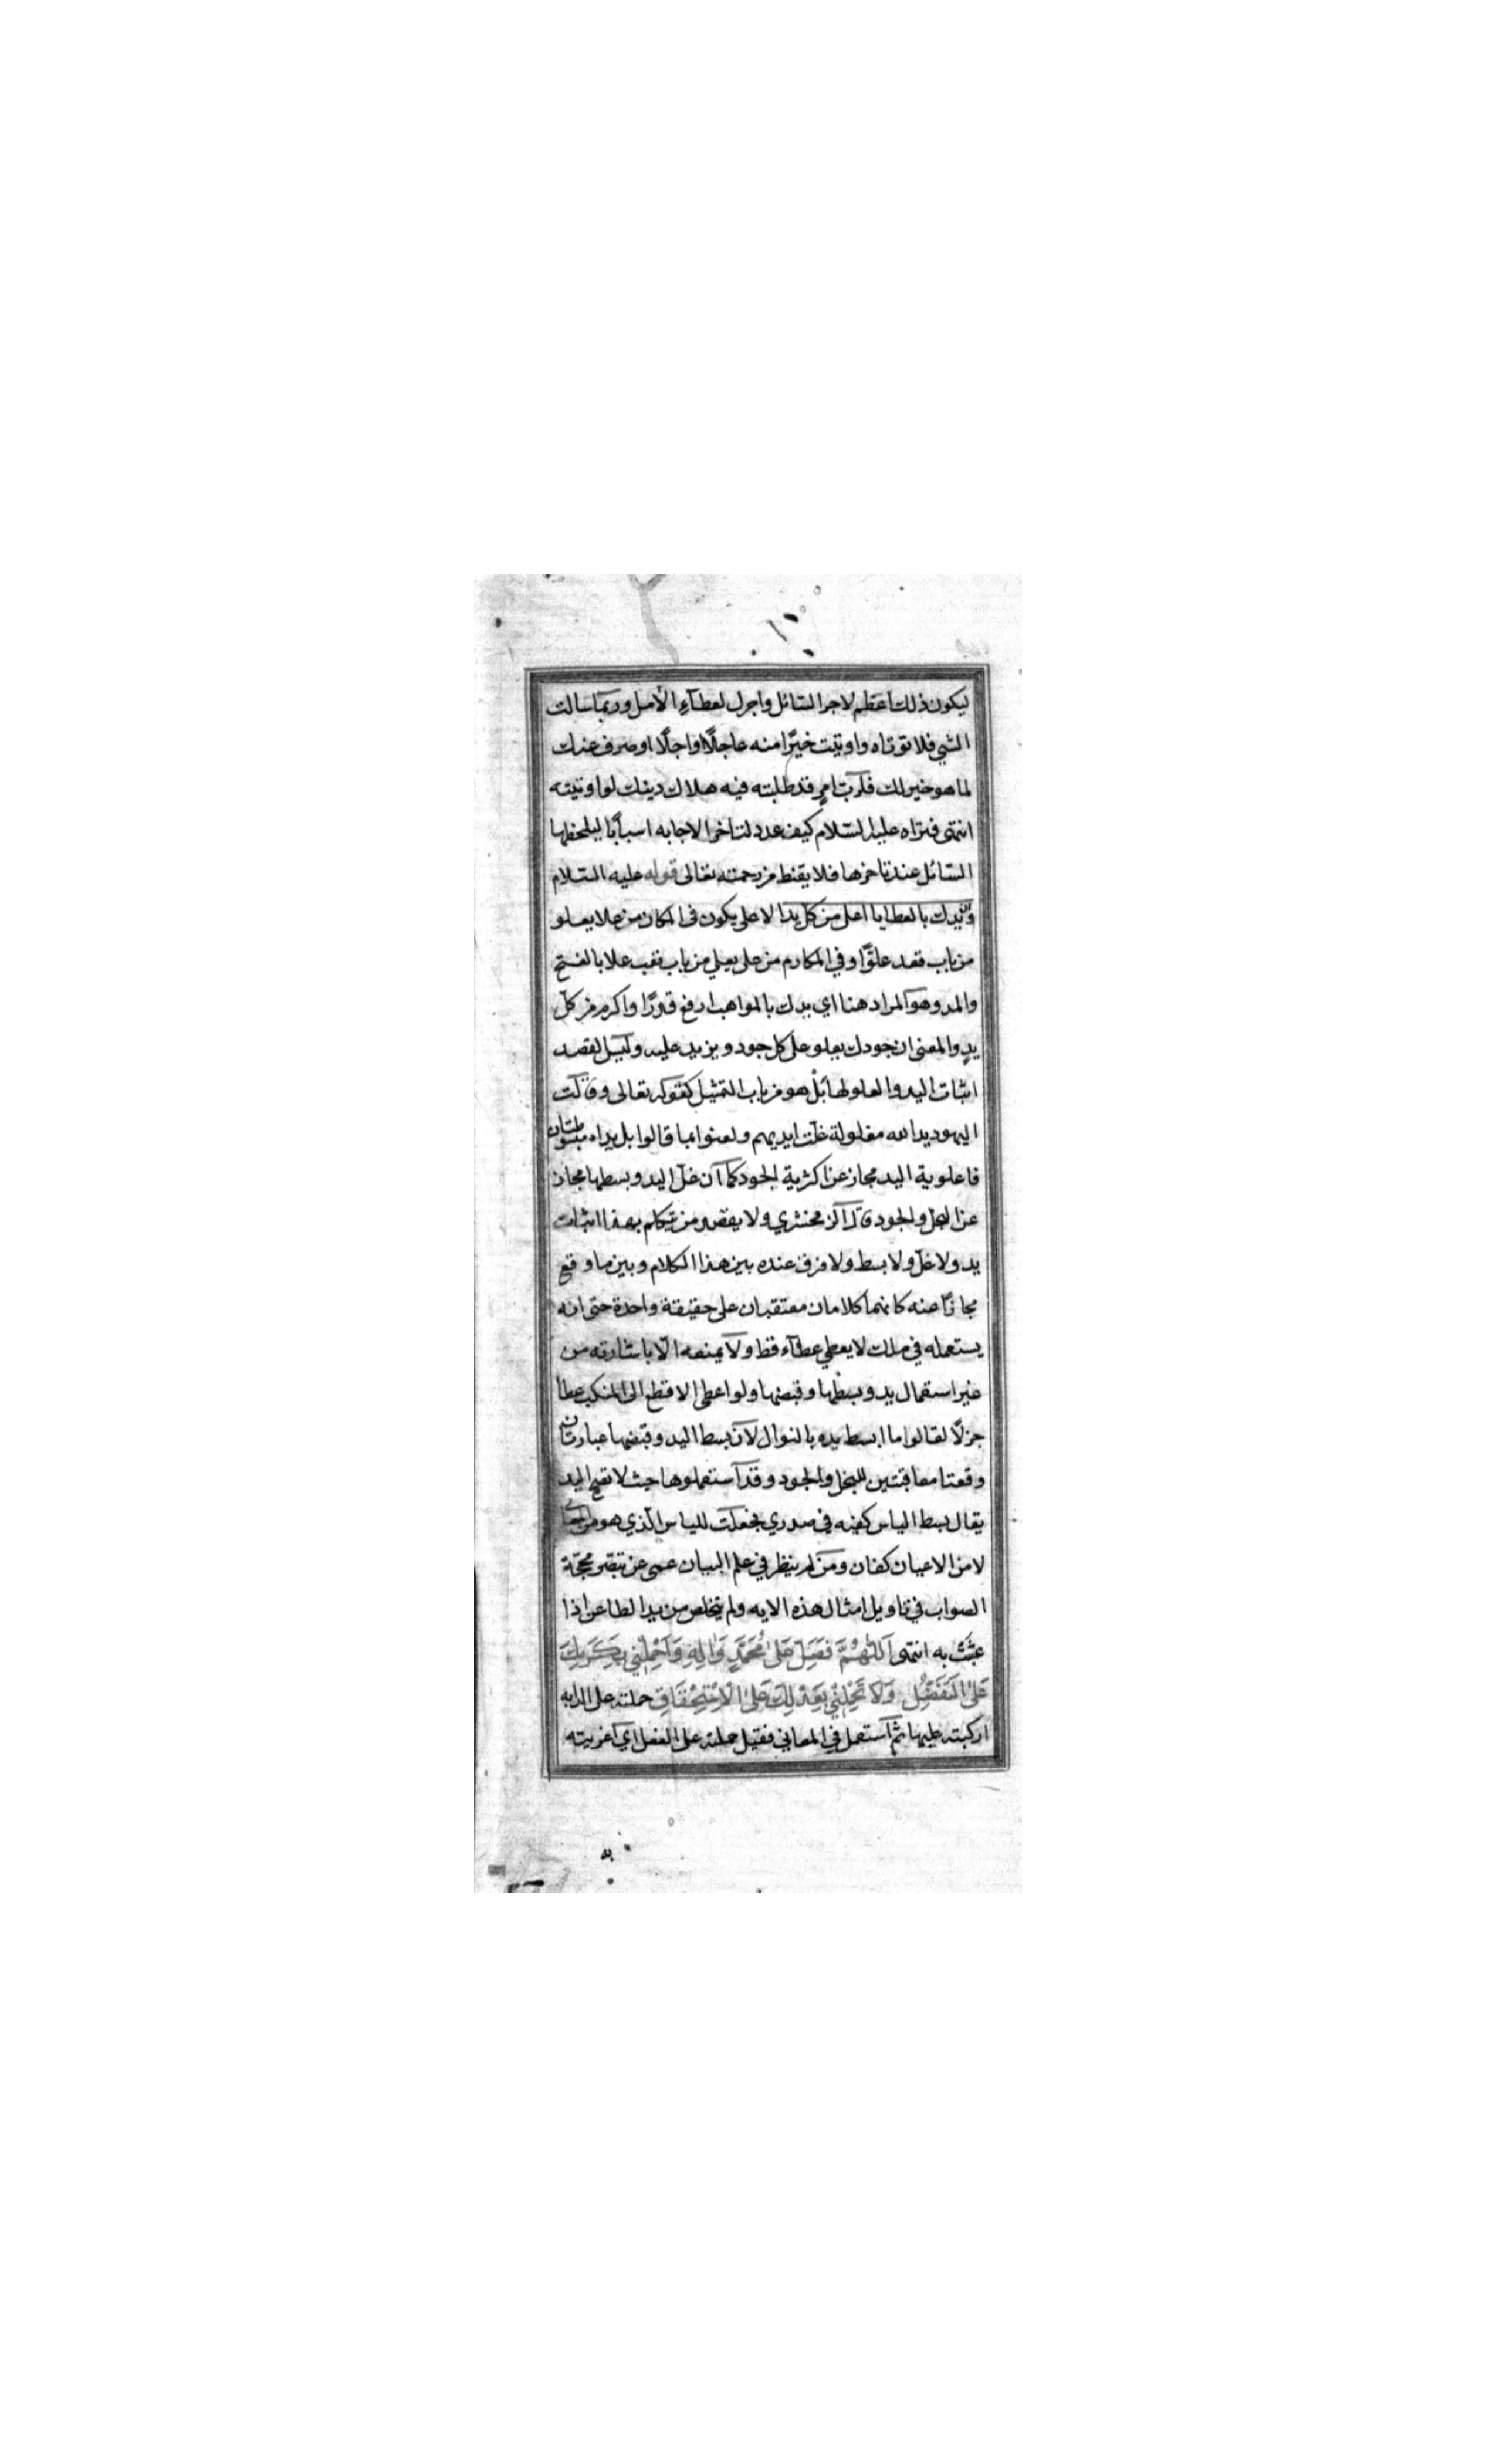 ليكون ذلك اعظم لاجر السّائل واجزل لعطآءِ الأمل وربما سالت
الشي فلا توتاه واوتيت خيرًا منه عاجلًا او اجلًا او صرف عنك
لما هو خير لك فلربّ امرٍ قد طلبته فيه هلاك دينك لو اوتيته
انتهى فتراه عليه السّلام كيف عدد لتاخر الاجابه اسبابًا ليلحظها
السّائل عند تاخرها فلا يقنط من رحمته تعالى قوله عليه السّلام
وانّ يدك بالعطايا اعلى من كلّ يد الاعلى يكون في المكان من علا يعلو
من باب قعد علوًّا وفي المكارم من على يعلي من باب تعب علا بالفتح
والمد وهو المراد هنا اي يدك بالمواهب ارفع قدرًا واكرم من كلّ
يدٍ والمعنى ان جودك يعلو على كل جود ويزيد عليه وليس القصد
اثبات اليد والعلو لها بَلْ هو من باب التمثيل كقوله تعالى وقالت
اليهود يد الله مغلولة غلّت ايديهم ولعنوا بما قالوا بل يداه مبسوطتان
فاعلوية اليد مجاز عن اكثرية الجود كما ان غلّ اليد وبسطها مجاز
عن البخل والجود قال الزمخشري ولا يقصد من يتكلم بهذا اثبات
يد ولا غلّ ولا بسط ولا فرق عنده بين هذا الكلام وبين ما وقع
مجازًا عنه كانهما كلامان معتقبان على حقيقة واحدة حتى انه
يستعمله في ملك لا يعطي عطآء قط ولا يمنعه الّا باشارته من
غير استعمال يد وبسطها وقبضها ولو اعطى الاقطع الى المنكب عطا
جزلًا لقالوا ما ابسط يده بالنوال لانّ بسط اليد وقبضها عبارتان
وقعتا معاقبتين للبخل والجود وقد استعملوها حيث لا تصح اليد
يقال بسط الياس كفيه في صدري فجعلت للياس الّذي هو من المعاني
لا من الاعيان كفان ومن لم ينظر في علم البيان عمى عن تبصّر محجّة
الصواب في تاويل امثال هذه الايه ولم يتخلص من يد الطاعن اذا
عبثت به انتهى اَللّٰهُمَّ فَصَلِّ عَلىٰ مُحَمَّدٍ وَاٰلِهِ وَاحْمِلْنِي بِكَرَمِكَ
عَلىٰ التَفَضُّلِ وَلَا تَحْمِلْنِي بِعَدْلِكَ عَلىٰ الْاِسْتِحْقَاقِ حملته على الدابه
اركبته عليها ثم استعمل في المعاني فقيل حملته على الفعل اي اغريته
به